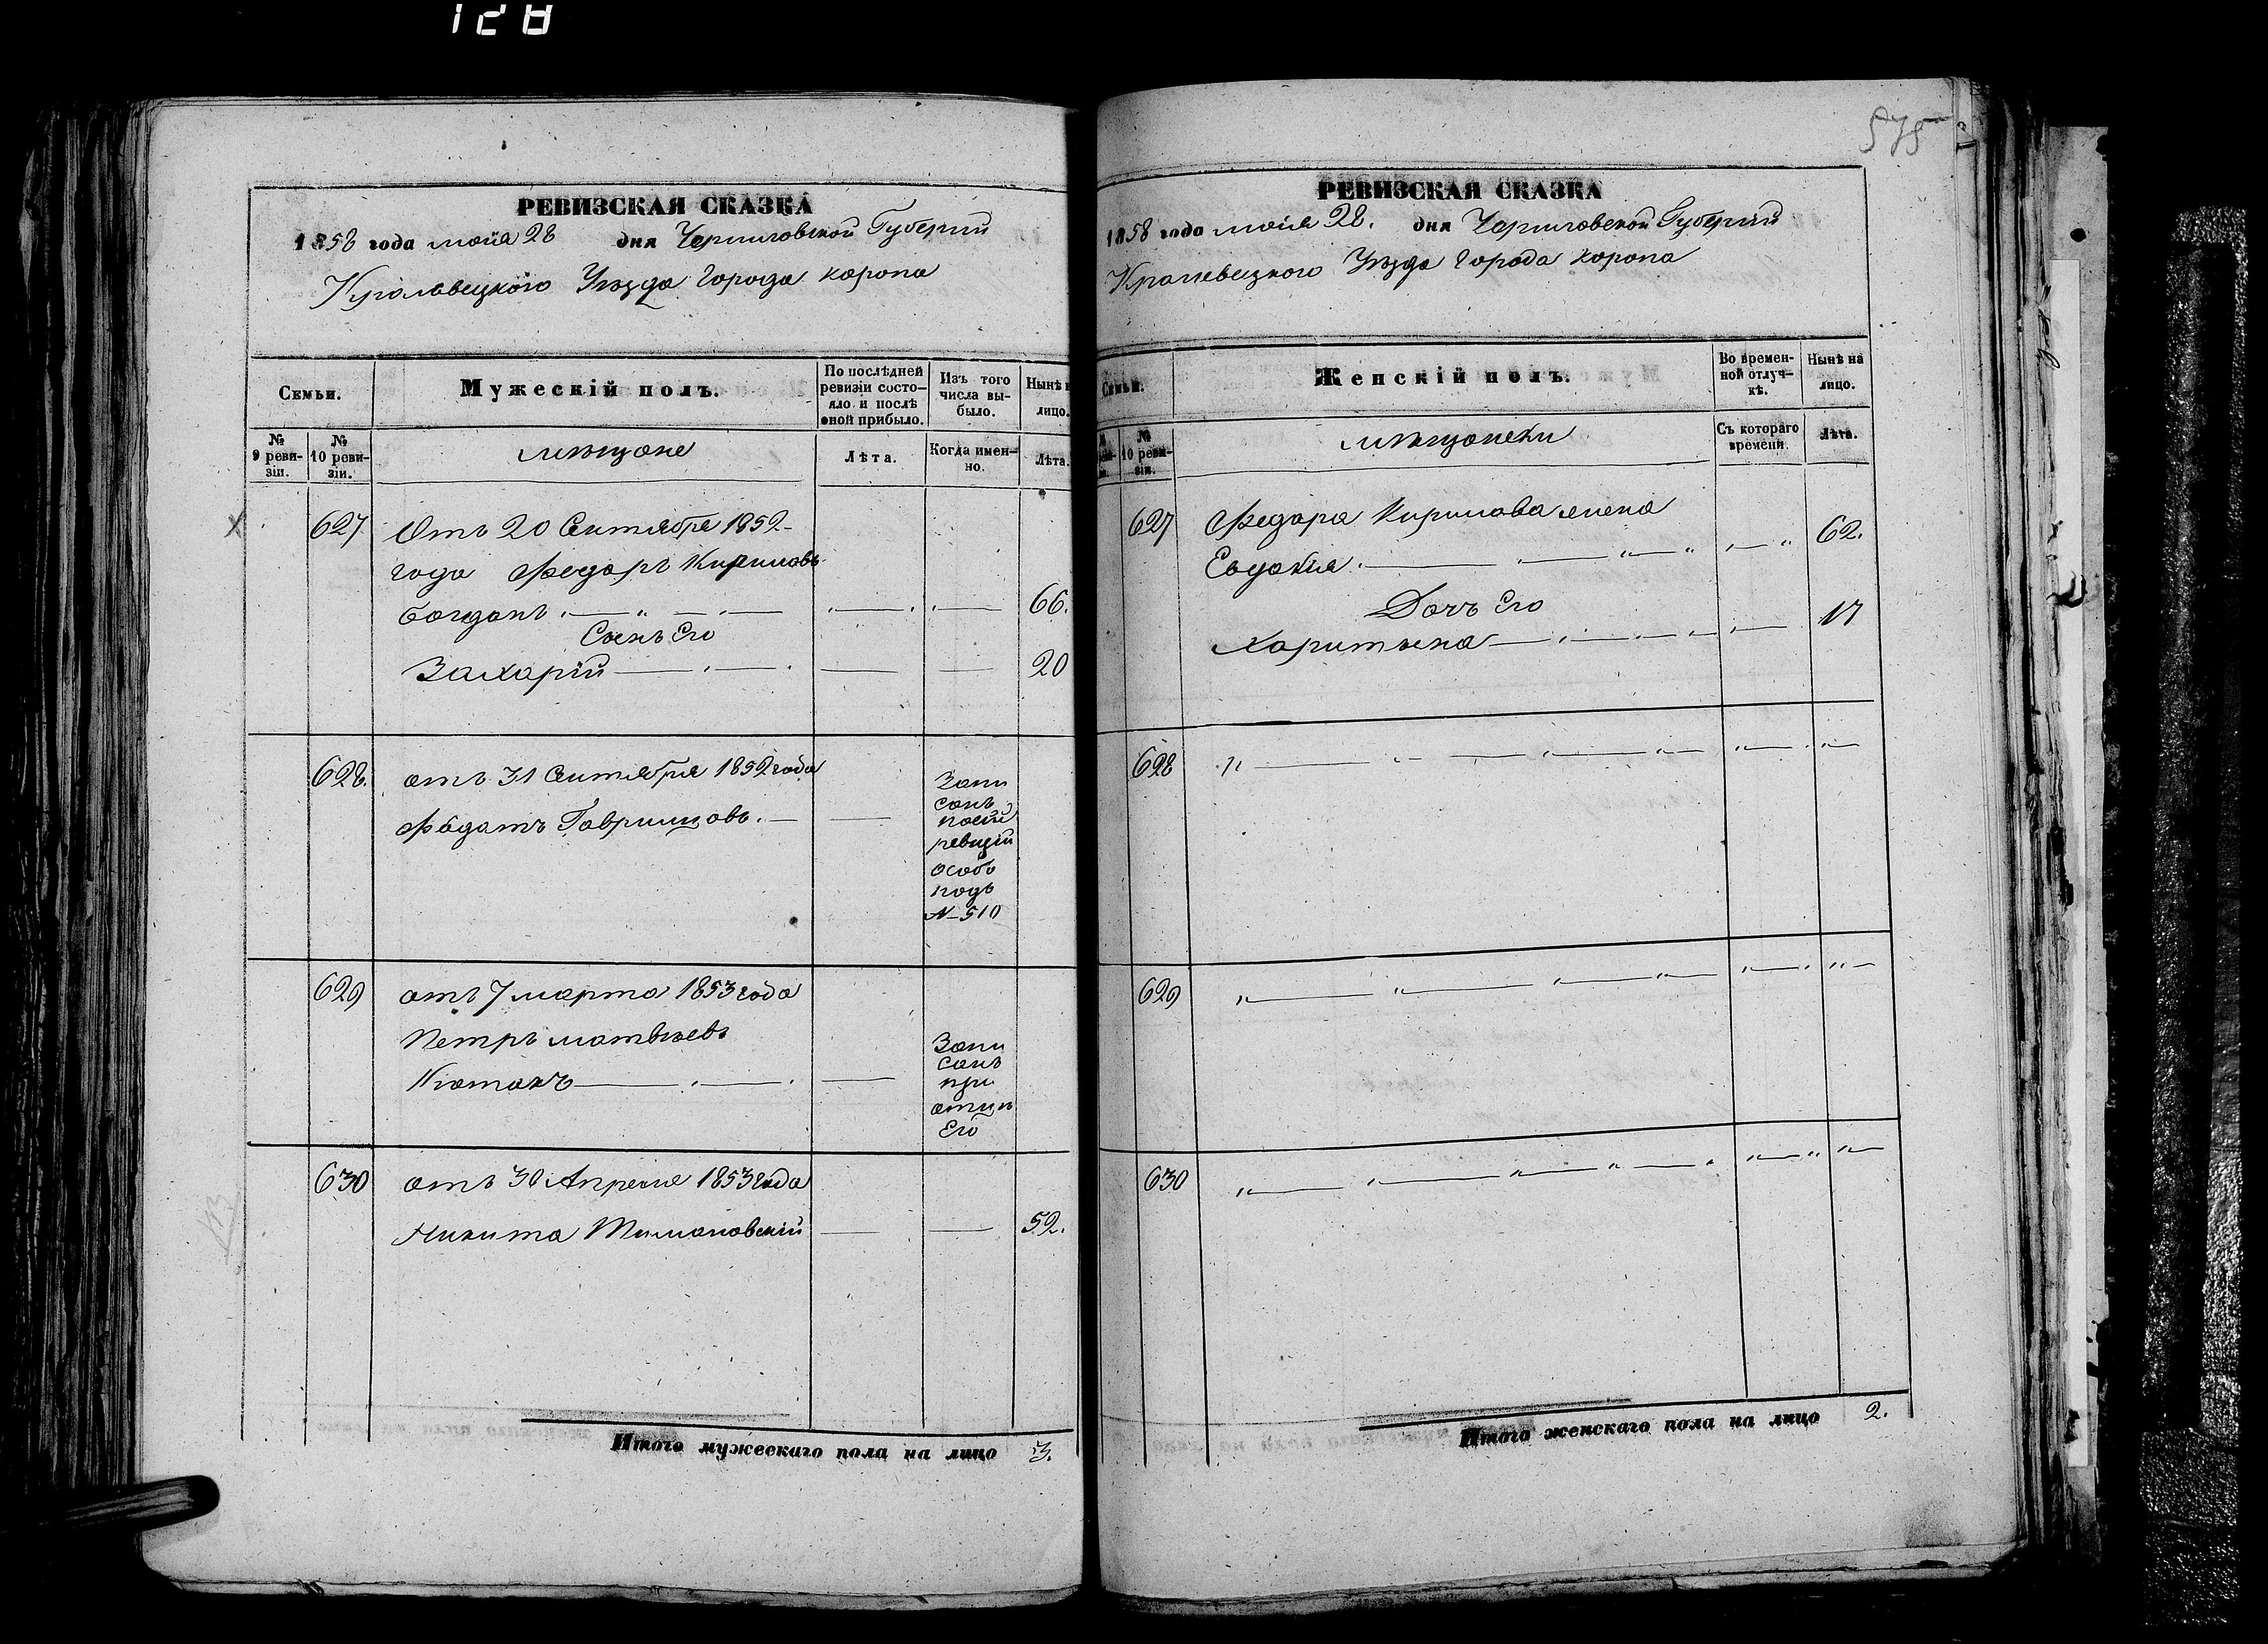 128
575
РЕВИЗСКАЯ СКАЗКА
1858 года мая 28 дня Черниговской Губернiи
Кролевецкого Уезда Города коропа
Семьи.
Мужескій полъ.
По послѣдней ревизіи состояло и послѣ оной прибыло.
Изъ того числа выбыло.
Нынѣ на лицо.
№ 9 ревизіи.
№ 10 ревизіи.
мѣщане
Лѣта.
Когда именно.
Лѣта.
627 Отъ 20 Сентября 1852
года Федоръ Кириловъ
Богданъ 66.
Сынъ Его
Захарій 20
628. отъ 31 Сентября 1852 года
Федотъ Гаврищовъ.
Запи
санъ
ревизіи
особо
подъ
№ 510
629 отъ 7 марта 1853 года
Петръ матвѣевъ
Запи
санъ
при
отцѣ
Его
630 отъ 30 Апреля 1853 года
Никита Тимоновскій 52.
Итого мужескаго пола на лицо 3.
РЕВИЗСКАЯ СКАЗКА
1858 года мая 28. дня Черниговской Губерніи
Кролевецкого Уезда Города коропа
Семьи.
Женскій полъ.
Во временной отлучкѣ.
Нынѣ на лицо.
№ 10 ревизіи.
мѣщанки
Съ котораго времени.
Лѣта.
627 Федора Кирилова жена
Евдокия 62.
Дочь Его
Харитына 17
628
629
630
Итого женскаго пола на лицо 2.